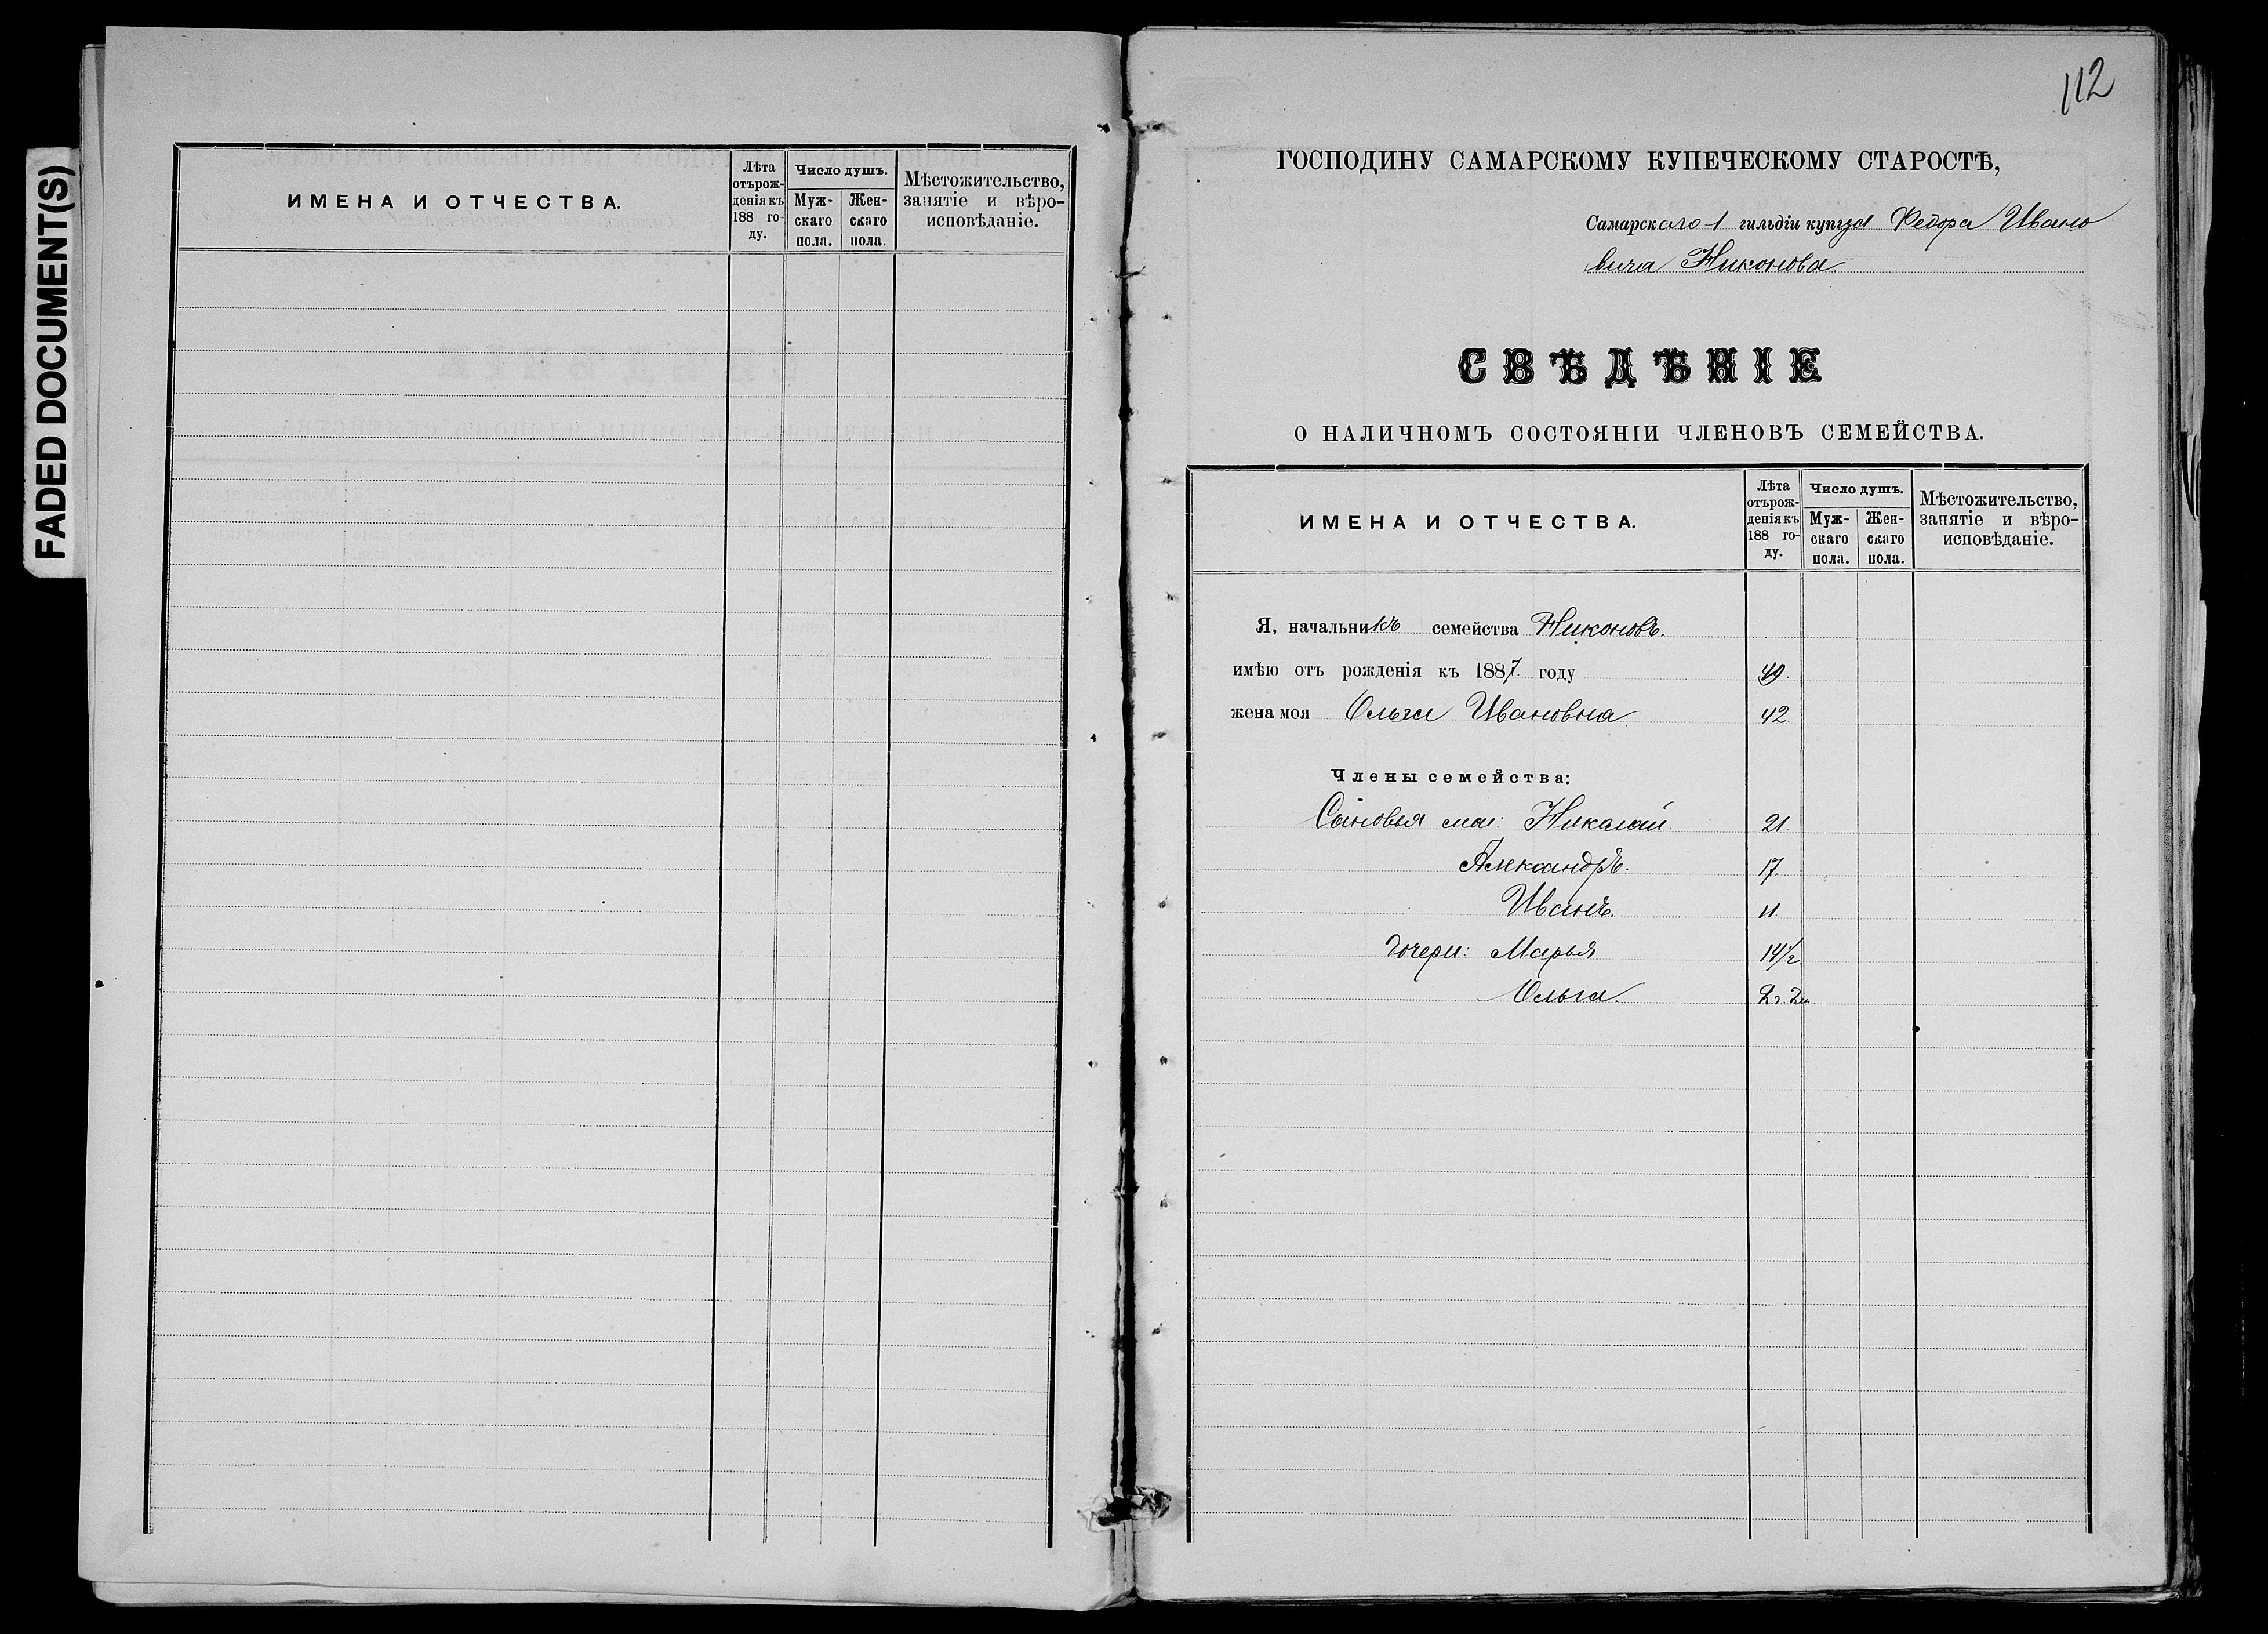 FADED DOCUMENT(S)
ИМЕНА И ОТЧЕСТВА.
Лѣта
отърож-
денія къ
188 го-
ду.
Число душъ.
Муж-
скаго
пола.
Жен-
скаго
пола.
Мѣстожительство,
занятіе и вѣро-
исповѣданіе.
112
ГОСПОДИНУ САМАРСКОМУ КУПЕЧЕСКОМУ СТАРОСТѢ,
Самарскаго 1 гильдіи купца Федора Ивано
вича Никонова.
СВѢДѢНІЕ
О НАЛИЧНОМЪ СОСТОЯНІИ ЧЛЕНОВЪ СЕМЕЙСТВА.
ИМЕНА И ОТЧЕСТВА.
Лѣта
отърож-
денія къ
188 го-
ду.
Число душъ.
Муж-
скаго
пола.
Жен-
скаго
пола.
Мѣстожительство,
занятіе и вѣро-
исповѣданіе.
Я, начальникъ семейства Никоновъ.
имѣю отъ рожденія къ 1887 году 49.
жена моя Ольга Ивановна 42
Члены семейства:
Сыновья мои: Николай. 21.
Александръ. 17.
Иванъ. 11.
дочери: Марья 14 1/2
Ольга. 2 г. 2 м.